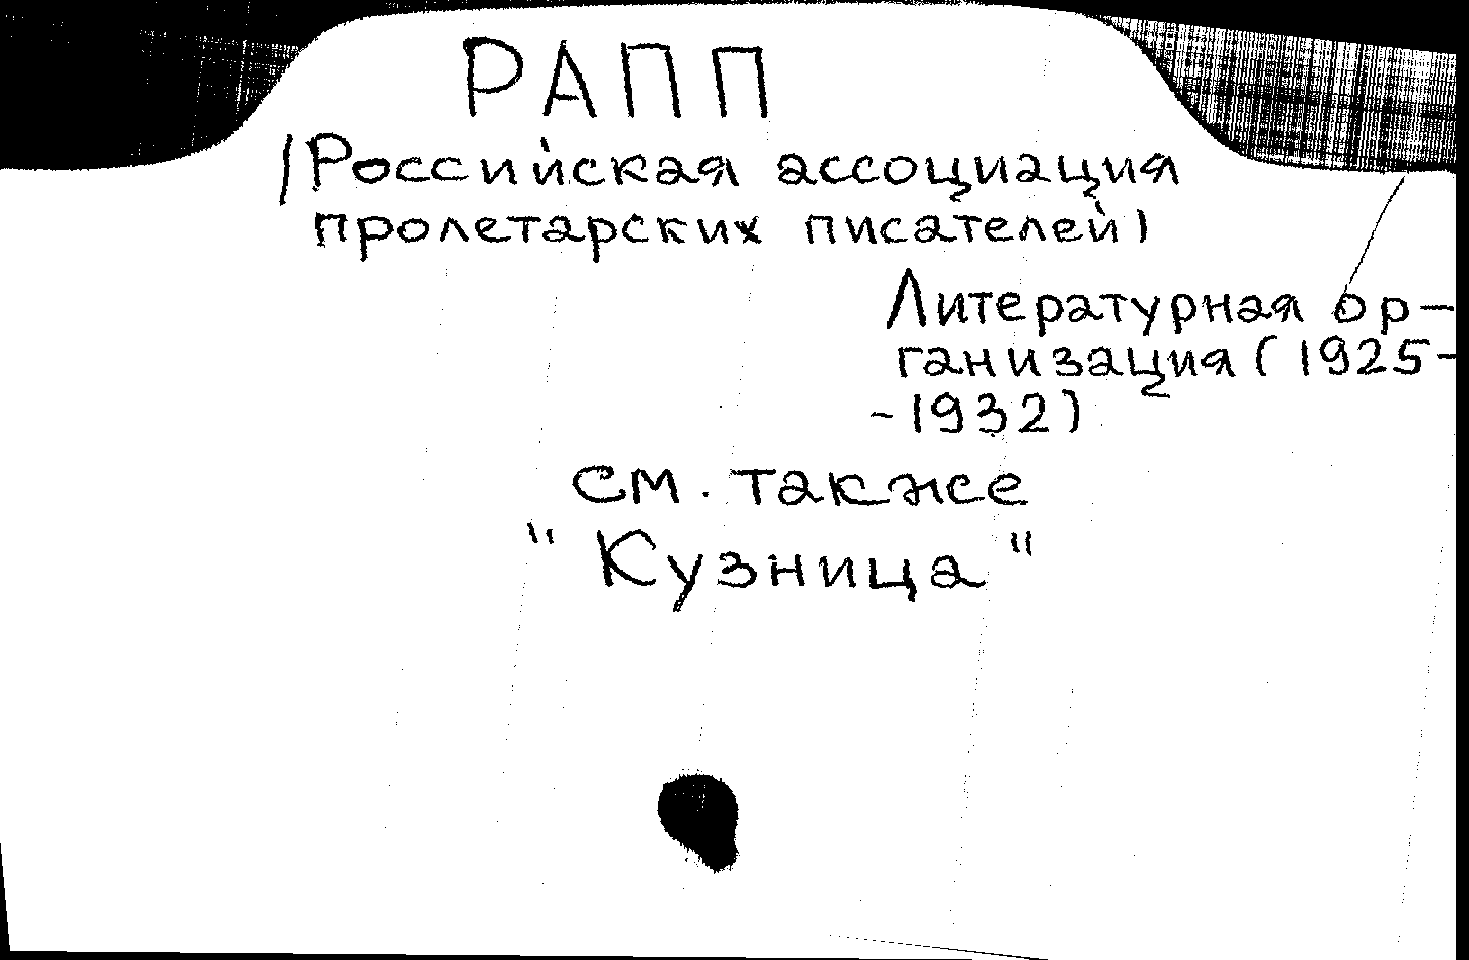 РАПП
/Российская ассоциация
пролетарских писателей)
Литературная ор-
ганизация (1925-
-1932)
см. также
"Кузница"